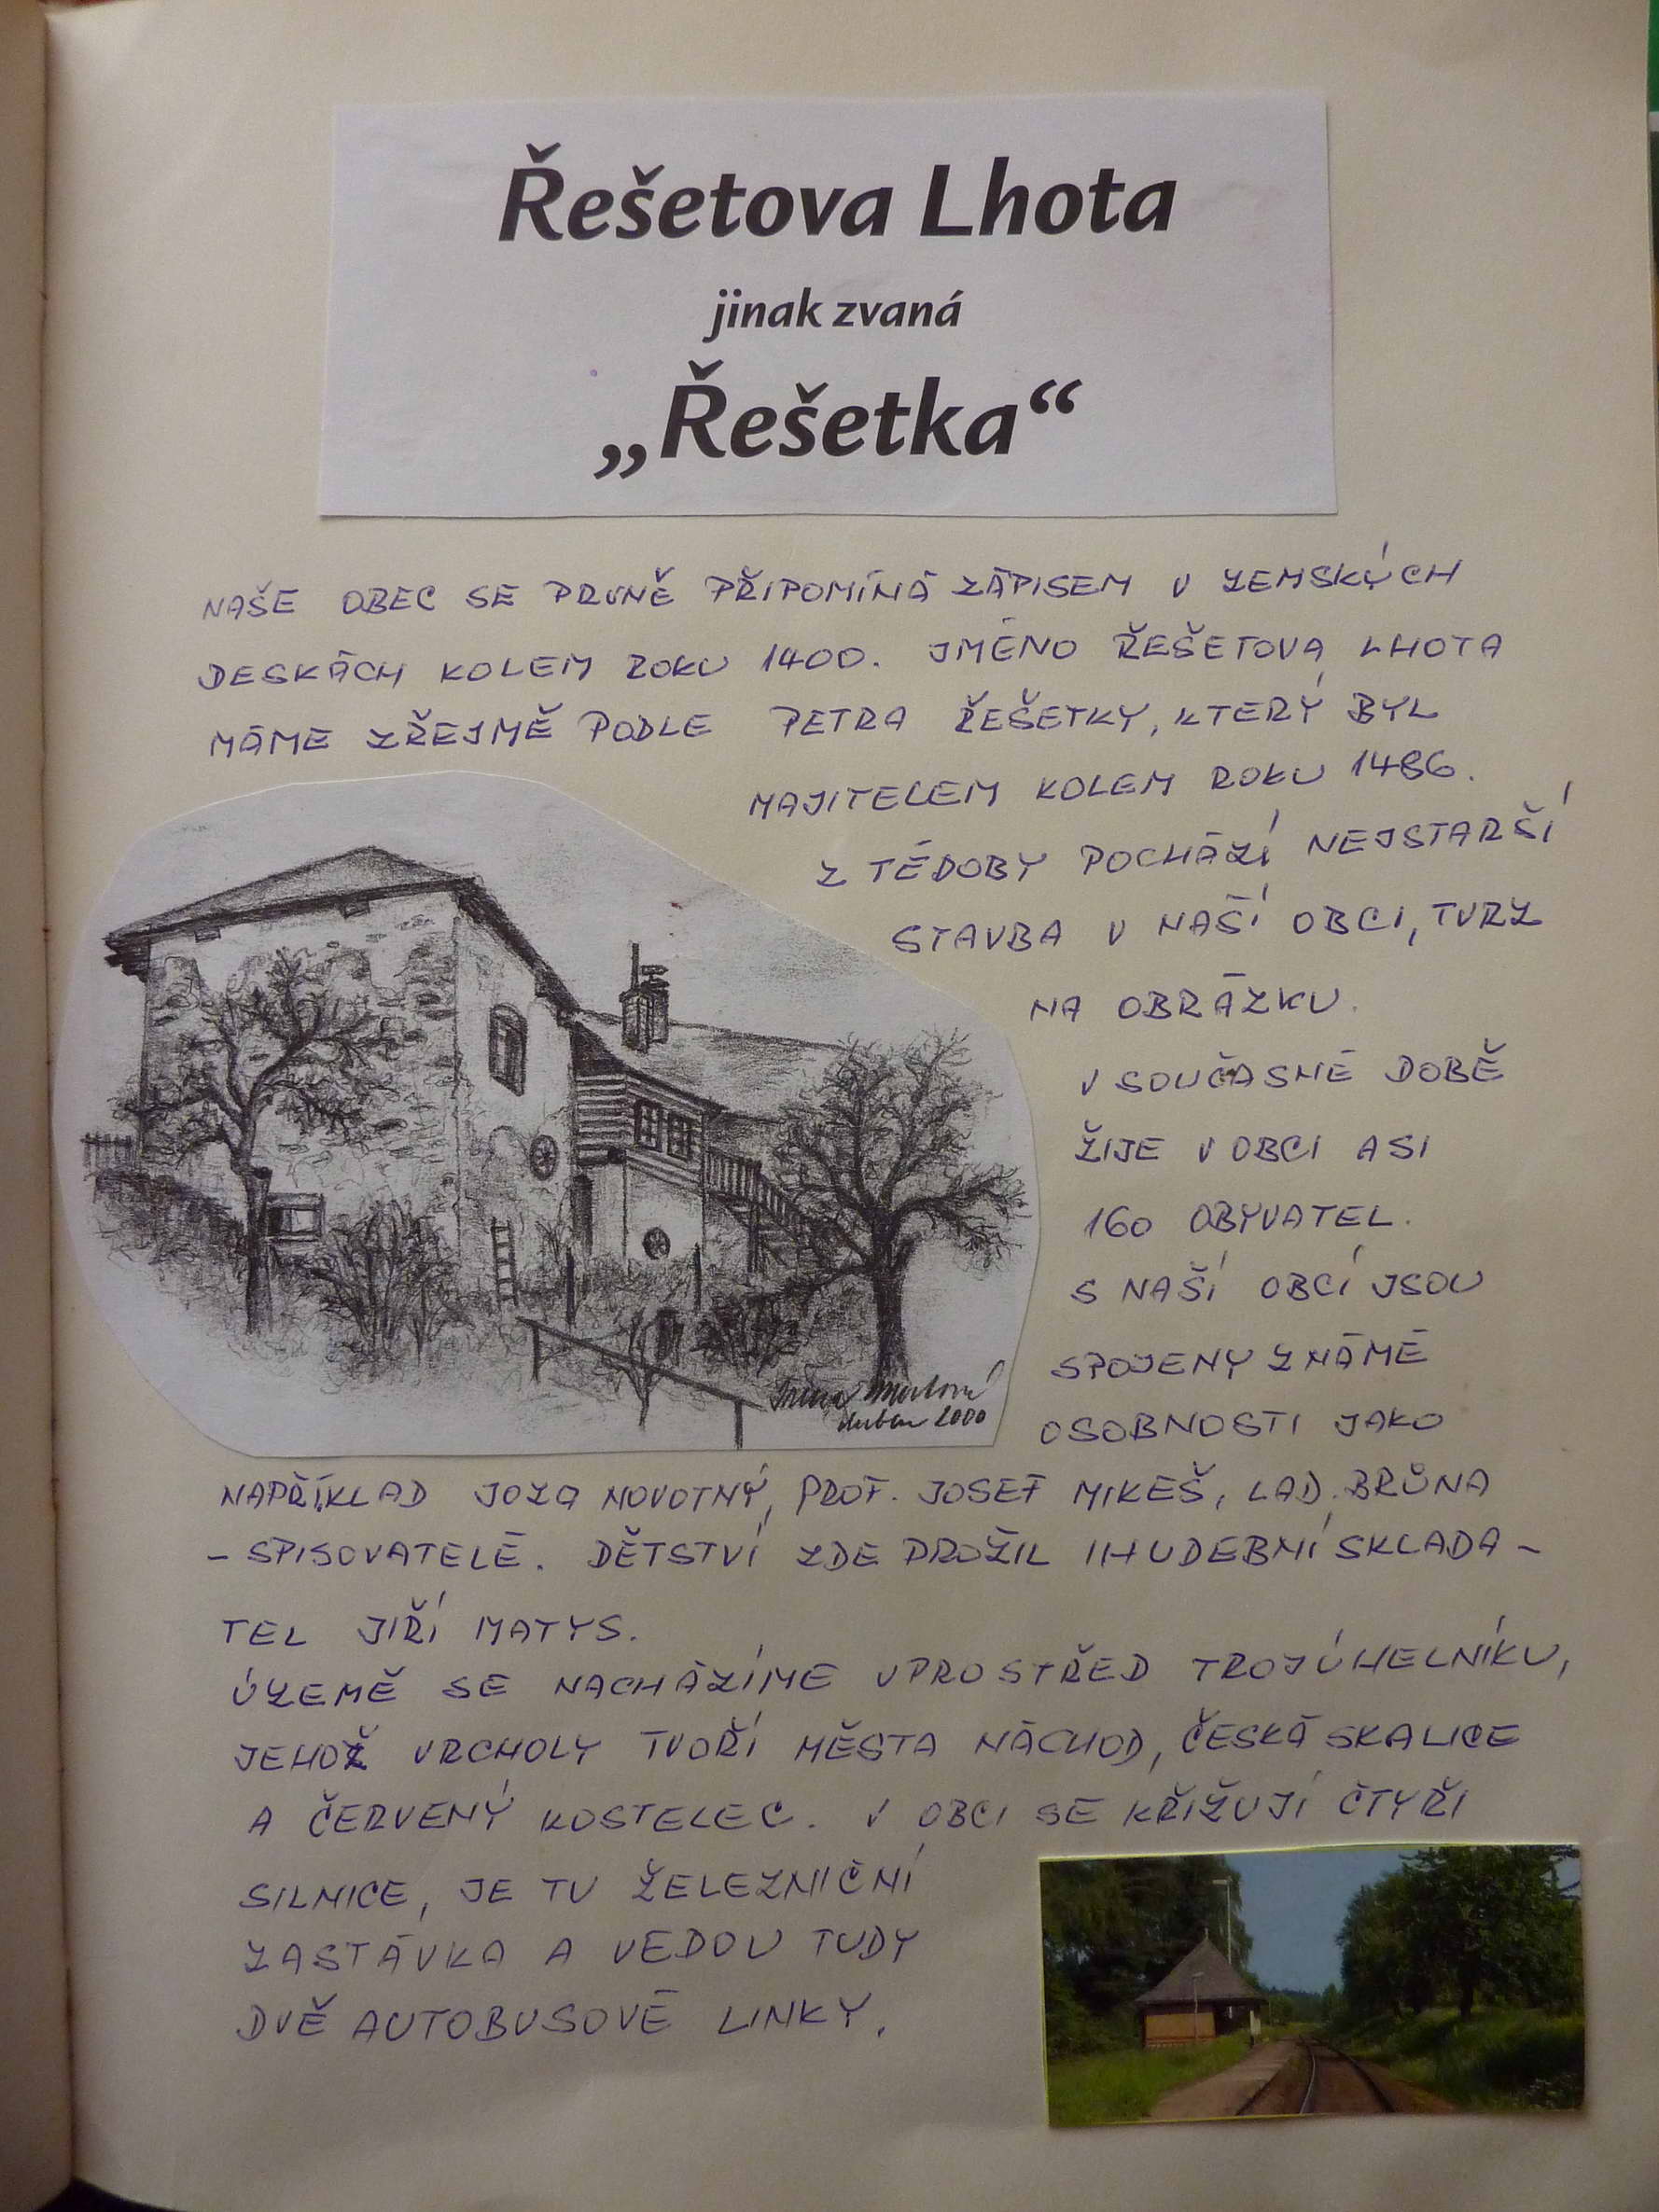 Řešetova Lhota
jinak zvaná
„Řešetka“
NAŠE OBEC SE PRVNĚ PŘIPOMÍNÁ ZÁPISEM V ZEMSKÝCH
DESKÁCH KOLEM ROKU 1400. JMÉNO ŘEŠETOVA LHOTA
MÁME ZŘEJMĚ PODLE PETRA ŘEŠETKY, KTERÝ BYL
MAJITELEM KOLEM ROKU 1486.
Z TÉDOBY POCHÁZÍ NEJSTARŠÍ
STAVBA V NAŠÍ OBCI, TVRZ
NA OBRÁZKU.
V SOUČASNÉ DOBĚ
ŽIJE V OBCI ASI
160 OBYVATEL.
S NAŠÍ OBCÍ JSOU
SPOJENY ZNÁMÉ
OSOBNOSTI JAKO
NAPŘÍKLAD JOZA NOVOTNÝ, PROF. JOSEF MIKEŠ, LAD. BRŮNA
- SPISOVATELÉ. DĚTSTVÍ ZDE PROŽIL I HUDEBNÍ SKLADA-
TEL JIŘÍ MATYS.
ÚZEMĚ SE NACHÁZÍME UPROSTŘED TROJÚHELNÍKU,
JEHOŽ VRCHOLY TVOŘÍ MĚSTA NÁCHOD, ČESKÁ SKALICE
A ČERVENÝ KOSTELEC. V OBCI SE KŘIŽUJÍ ČTYŘI
SILNICE, JE TU ŽELEZNIČNÍ
ZASTÁVKA A VEDOU TUDY
DVĚ AUTOBUSOVÉ LINKY.
duben 2000